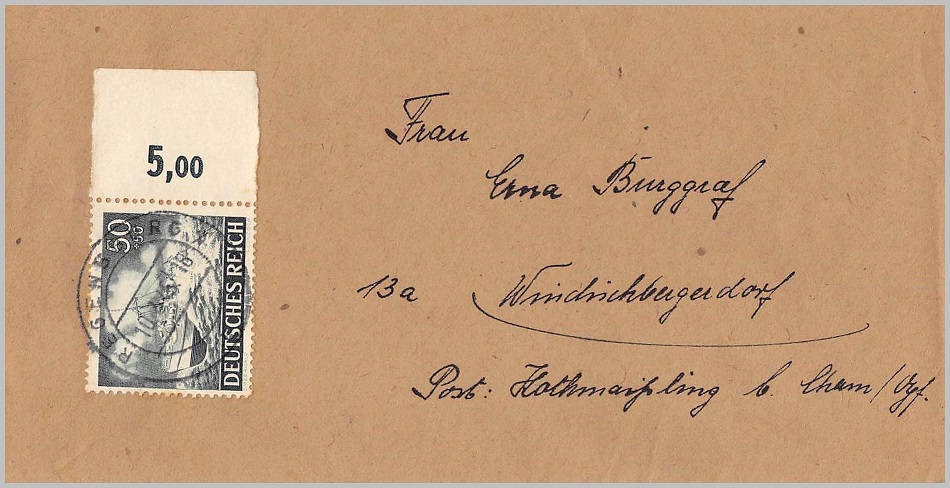 5,00
50
+50
DEUTSCHES REICH
REGENSBURG
Frau
Erna Burggraf
13a Windischbergerdorf
Post: Hothmaißling b. Cham/Opf.